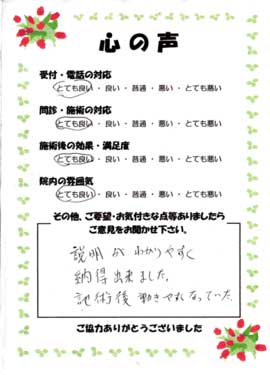 心の声
受付・電話の対応
とても良い・良い・普通・悪い・とても悪い
問診・施術の対応
とても良い・良い・普通・悪い・とても悪い
施術後の効果・満足度
とても良い・良い・普通・悪い・とても悪い
院内の雰囲気
とても良い・良い・普通・悪い・とても悪い
その他、ご要望・お気付きな点等ありましたら
ご意見をお聞かせ下さい。
説明がわかりやすく
納得出来ました。
施術後動きやすくなっていた。
ご協力ありがとうございました